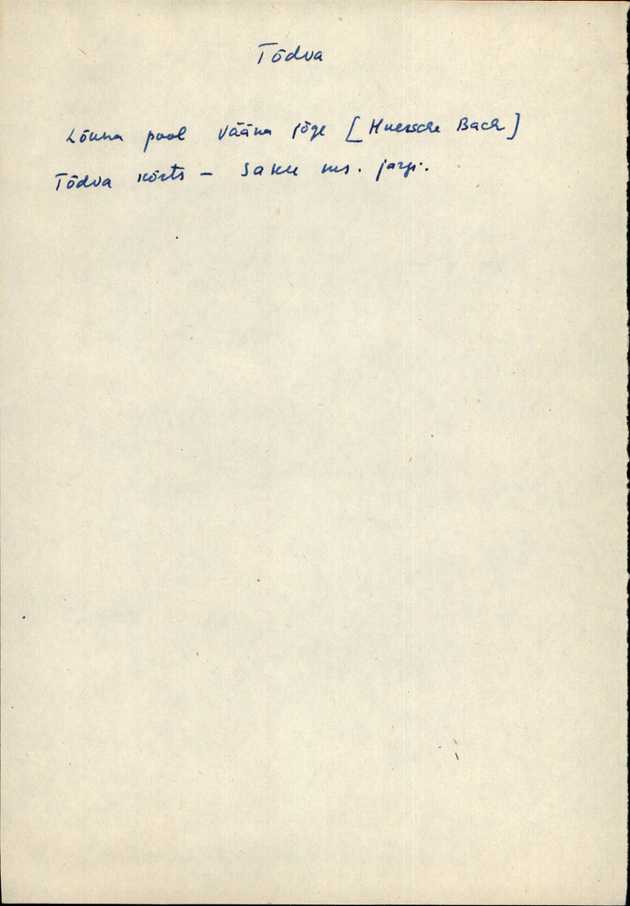 Tõdva
Lõuna pool Vääna jõge [Huersche Bach]
Tõdva kõrts – Saku ms. järgi.